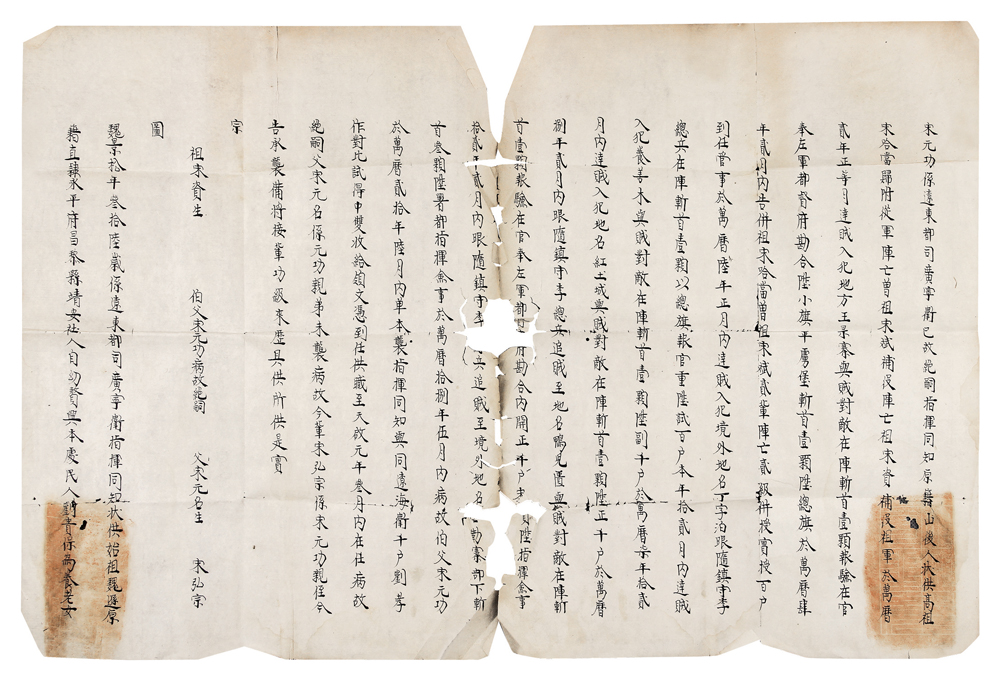 宋元功係遼東都司廣寧衛已故絶嗣指揮同知原籍山後人狀供高祖
宋哈當歸附從軍陣亡曾祖宋斌補役陣亡祖宋資補役祖軍於萬曆
貳年正等月達賊入犯地方王景寨與賊對敵在陣斬首壹顆報驗在官
奉左軍都督府勘合陞小旗平虜堡斬首壹顆陞總旗於萬曆肆
年貳月內告併祖宋哈當曾祖宋斌貳輩陣亡貳級併授實授百户
到任管事於萬曆陸年正月內達賊入犯境外地名丁字泊跟隨鎮守李
總兵在陣斬首壹顆以總旗報官重陞試百户本年拾貳月內達賊
入犯養善木與賊對敵在陣斬首壹顆陞副千户於萬曆柒年拾貳
月內達賊入犯地名紅土城與賊對敵在陣斬首壹顆陞正千户於萬曆
捌年貳月內跟隨鎮守李總兵追賊至地名鴨兒匱與賊對敵在陣斬
首壹顆報驗在官奉左軍都府勘合內開正千户宋資陞指揮僉事
拾貳年貳月內跟隨鎮守李兵追賊至境外地名勒寨部下斬
首叁顆陞署都指揮僉事於萬曆拾捌年伍月內病故伯父宋元功
於萬曆貳拾年陸月內單本襲指揮同知與同遼海衛千户劉孝
作對比試得中雙收給領文憑到任供職至天啟元年叁月內在任病故
絶嗣父宋元名係元功親弟未襲病故今輩宋弘宗係宋元功親侄今
告承襲備將接輩功級來歷具供所供是實
宗
祖宋資生 伯父宋元功病故絶嗣 父宋元名生 宋弘宗
圖
魏景松年叁拾陸歲係遼東都司廣寧衛指揮同知狀供始祖魏遜原
籍直隸永平府昌黎縣靖安社人自幼贅與本處民人劉貴保為養老女